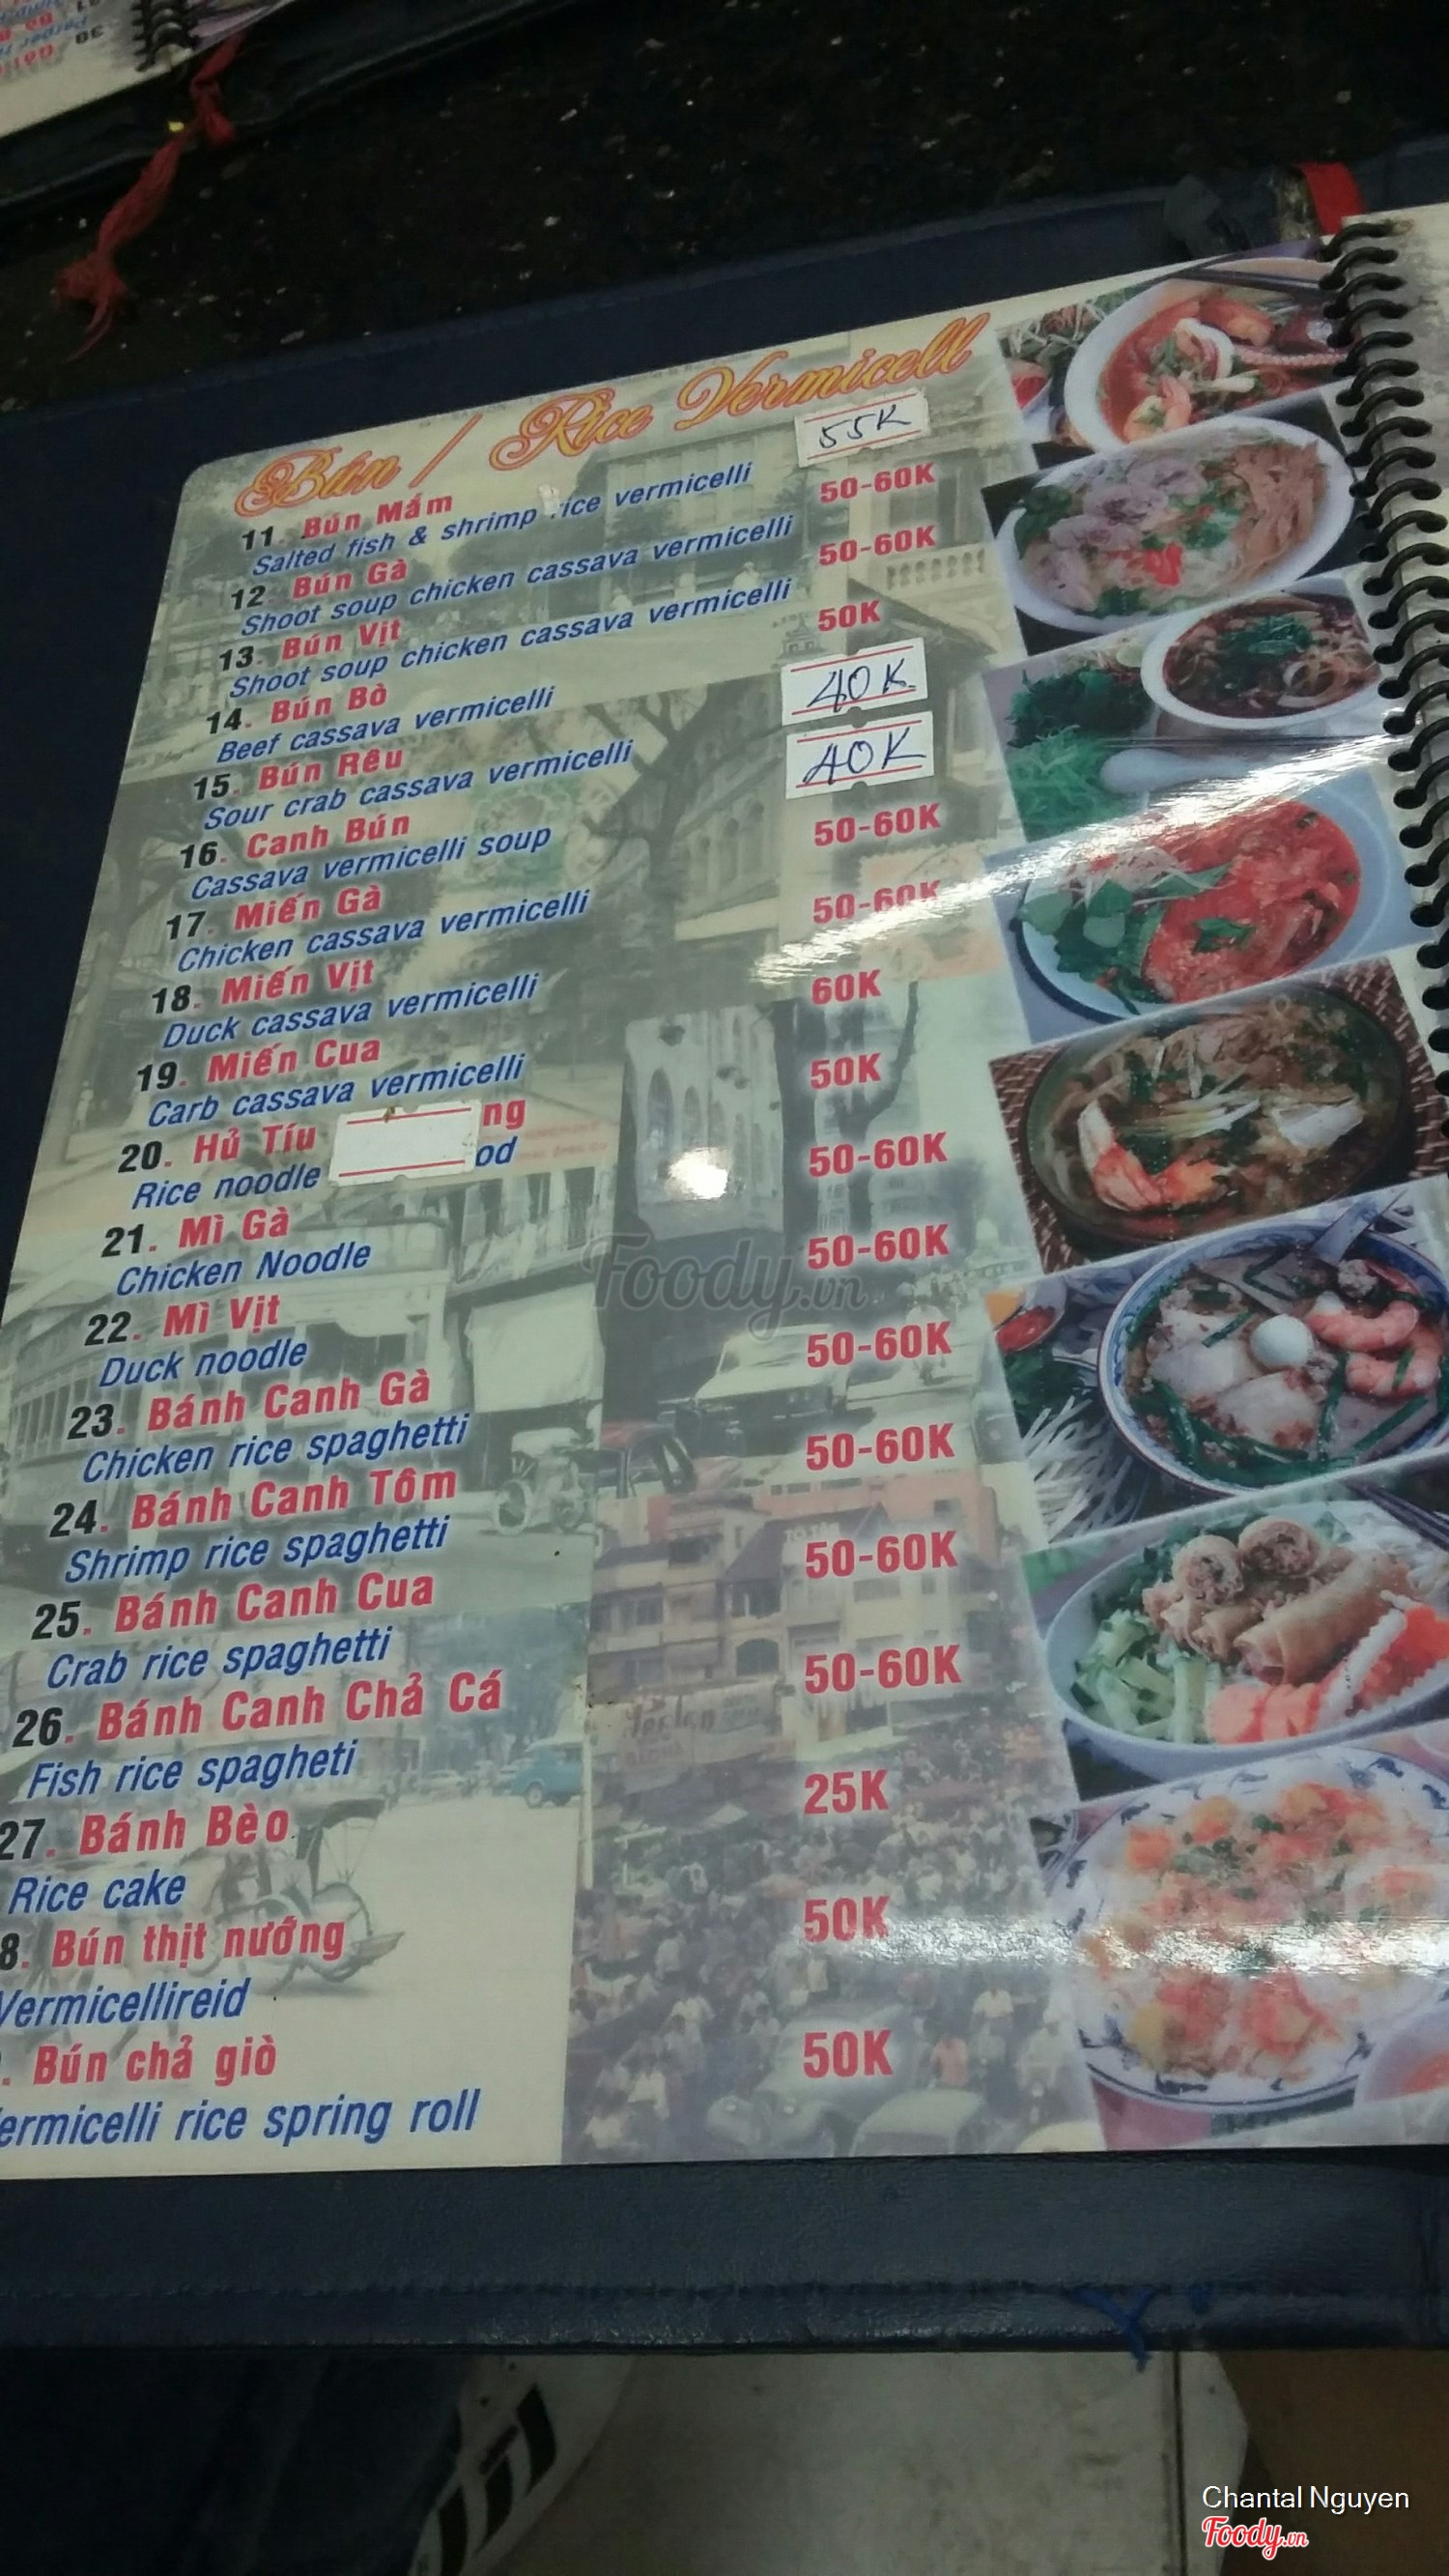 Bún / Rice Vermicell
11. Bún Mắm 55K
Salted fish & shrimp rice vermicelli
12. Bún Gà 50-60K
Shoot soup chicken cassava vermicelli
13. Bún Vịt 50-60K
Shoot soup chicken cassava vermicelli
14. Bún Bò 50K
Beef cassava vermicelli
15. Bún Rêu 40K
Sour crab cassava vermicelli
16. Canh Bún 40K
Cassava vermicelli soup
17. Miến Gà 50-60K
Chicken cassava vermicelli
18. Miến Vịt 50-60K
Duck cassava vermicelli
19. Miến Cua 60K
Carb cassava vermicelli
20. Hủ Tíu ng 50K
Rice noodle od
21. Mì Gà 50-60K
Chicken Noodle
22. Mì Vịt 50-60K
Duck noodle
23. Bánh Canh Gà 50-60K
Chicken rice spaghetti
24. Bánh Canh Tôm 50-60K
Shrimp rice spaghetti
25. Bánh Canh Cua 50-60K
Crab rice spaghetti
26. Bánh Canh Chả Cá 50-60K
Fish rice spagheti
27. Bánh Bèo 25K
Rice cake
8. Bún thịt nướng 50K
Vermicellireid
. Bún chả giò 50K
ermicelli rice spring roll
Foody.vn
Chantal Nguyen
Foody.vn